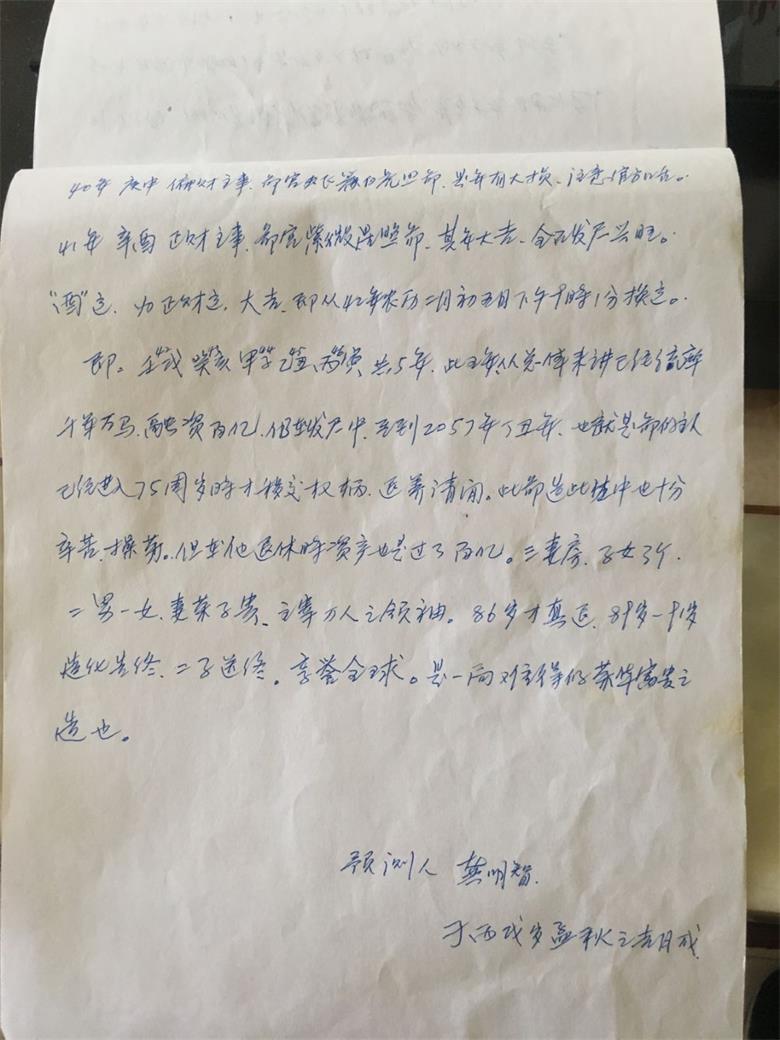 40年 庚申 偏财主事、命宫飞廉白虎照命、是年有大损、注意官方口舌。
41年 辛酉 正财主事、命宫紫微星照命、其年大吉、全面发展兴旺。
“酉”运、为正财运、大吉、即从42年农历二月初五日下午9时1分换运。
即。壬戌 癸亥 甲子 乙丑、丙寅、共5年、此五年从总体来讲已经统率
千军万马、融资百亿、仍在发展中、直到2057年丁丑年、也就是命的主人
已经进入75周岁时才移交权柄、返养清闲。此命造此生中也十分
辛苦、操劳。但在他退休时资产也是过了百亿。三妻房、子女3个、
二男一女、妻荣子贵、主宰万人之领袖。86岁才真正、89岁-91岁
造化告终、二子送终。享誉全球。是一尚难得的荣华富贵之
造也。
预测人 龚明智.
于丙戌岁孟秋之吉月成